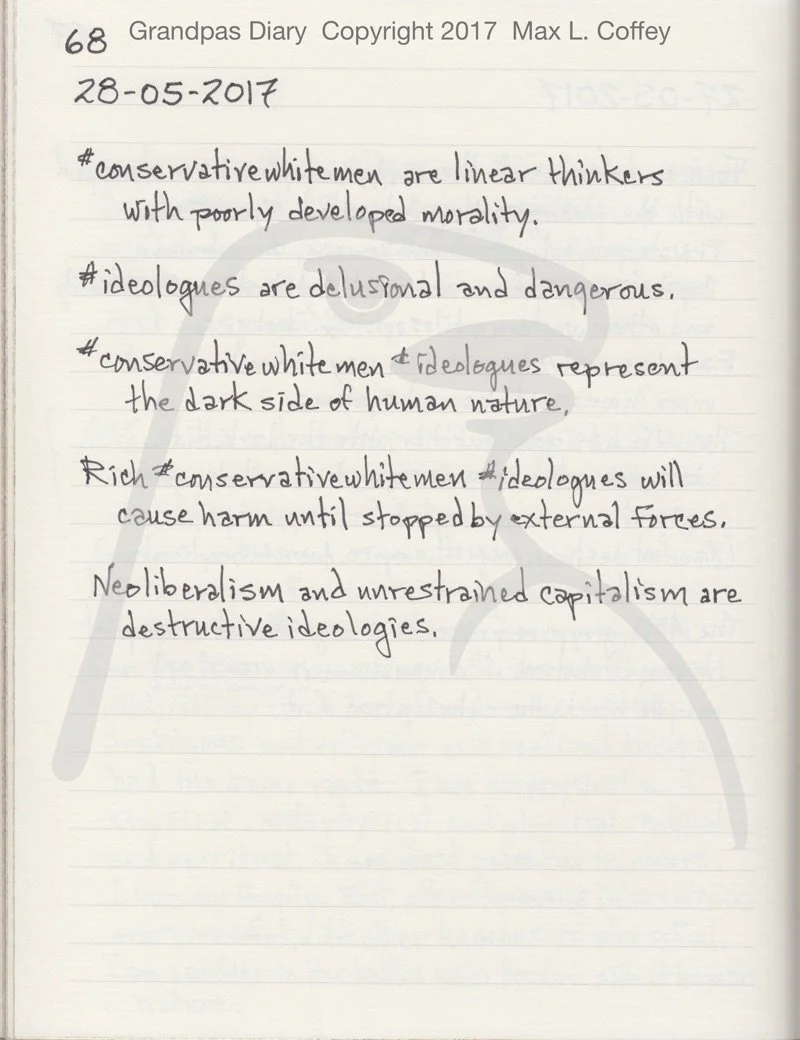 68 Grandpas Diary Copyright 2017 Max L. Coffey
28-05-2017
#conservativewhitemen are linear thinkers
with poorly developed morality.
#ideologues are delusional and dangerous.
#conservativewhitemen & ideologues represent
the dark side of human nature.
Rich #conservativewhitemen #ideologues will
cause harm until stopped by external forces.
Neoliberalism and unrestrained capitalism are
destructive ideologies.